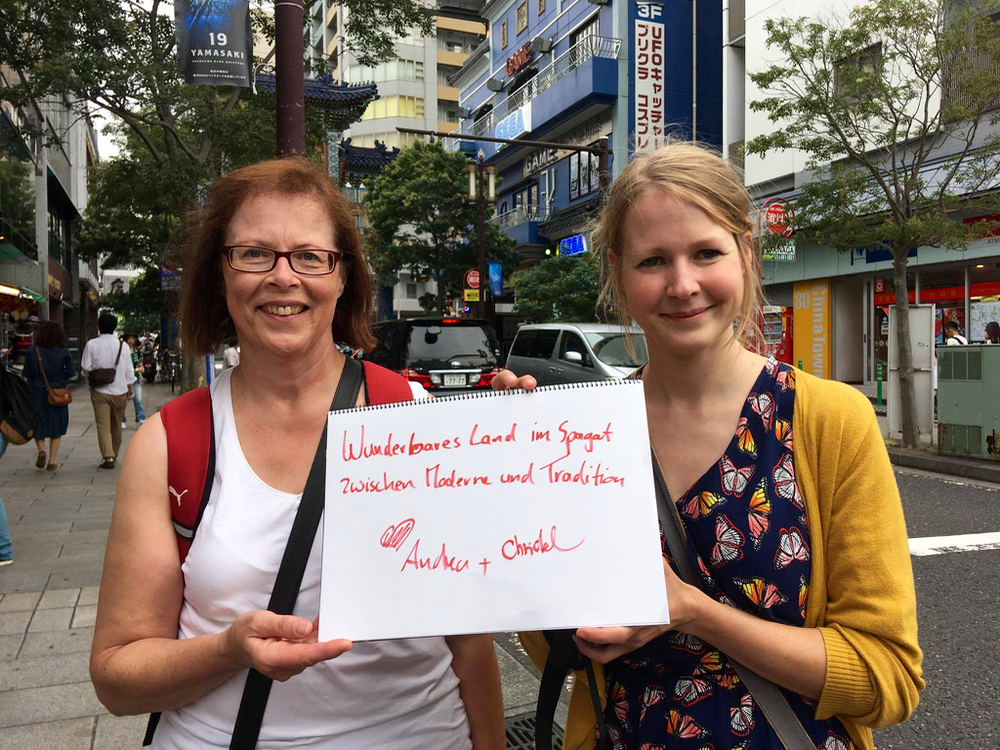 19
YAMASAKI
3F
プリクラ コスプレ
UFOキャッチャー
GAME
SEGA
GAME
SEGA
80
China Town
77-77
Wunderbares Land im Spagat
zwischen Moderne und Tradition
Andrea + Christel